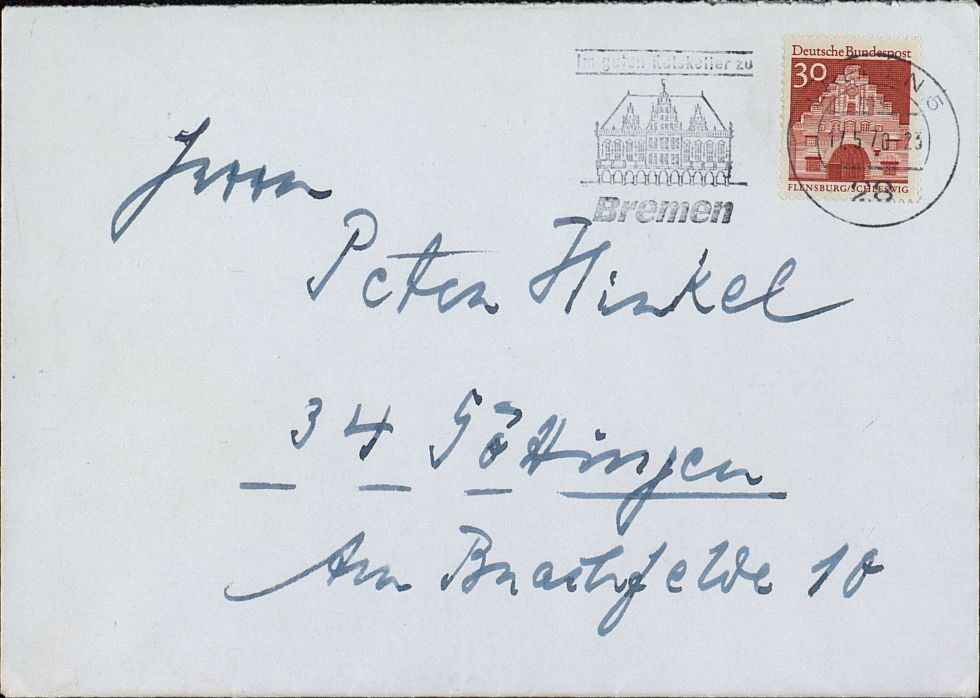 Im guten Ratskeller zu
Bremen
Deutsche Bundespost
30
FLENSBURG/SCHLESWIG
5
-23
28
Herrn
Peter Hinkel
34 Göttingen
Am Brachfelde 10